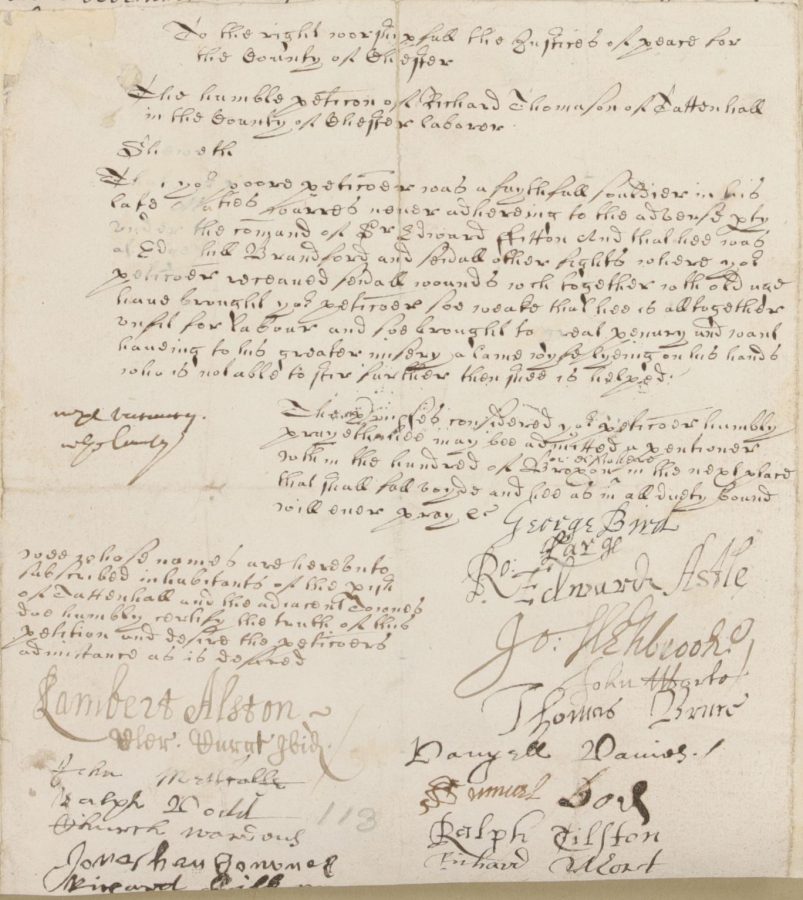 To the right worshipfull the Justices of peace for
the County of Chester
The humble peticon of Richard Thomason of Tattenhall
in the County of Chester laborer
Sheweth
That yor poore peticoer was a faythfull souldier in his
late Maties warres never adhereing to the adverse pty
under the comand of Sr Edward ffitton And that hee was
at Edgehill Brandford and sevall other fights where yor
peticoer receaued sevall wounds wch together wth old age
haue brought yor peticoer soe weake that hee is alltogether
vnfit for labour and soe brought to great penury and want
haueing to his greater misery a lame wyfe lyeing on his hands
who is not able to stir further then shee is helped.
The pmisses considered yor peticoer humbly
prayeth hee may bee admitted a pentioner
wthin the hundred of Broxon in the next place
that shall fall voyde and hee as in all duety bound
will ever pray &c
George Bird
wee whose names are herebnto
subscribed inhabitants of the pish
of Tattenhall and the adiacent Townes
doe humbly certify the truth of this
petition and desire the peticoers
admitance as is desired
Ro:
Edward Astle
Jo:
John
Thomas Bruce
Lambert Alston
Daniell Davies
John
Ralph Dodd
Church wardens
Samuel Dod
Ralph Tilston
Richard
Jonathan
Richard
113